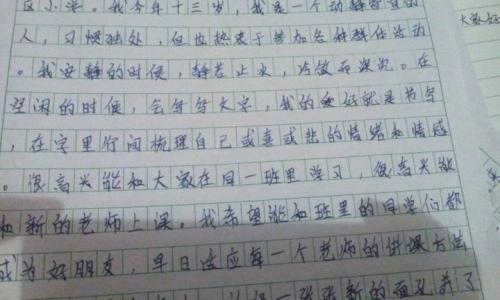 我今年十三岁，我是一个动静皆宜的
人，习惯独处，但也热衷于参加各种群体活动
。我安静的时候，静若止水，冷傲而深沉。在
空闲的时候，会写写文字，我的爱好就是书写
，在字里行间梳理自己或喜或悲的情绪和情感
。很高兴能和大家在同一班里学习，很高兴能
和新的老师上课。我希望能和班里的同学们都
成为好朋友，早日适应每一个老师的讲课方法
一张张新的面孔
大家好